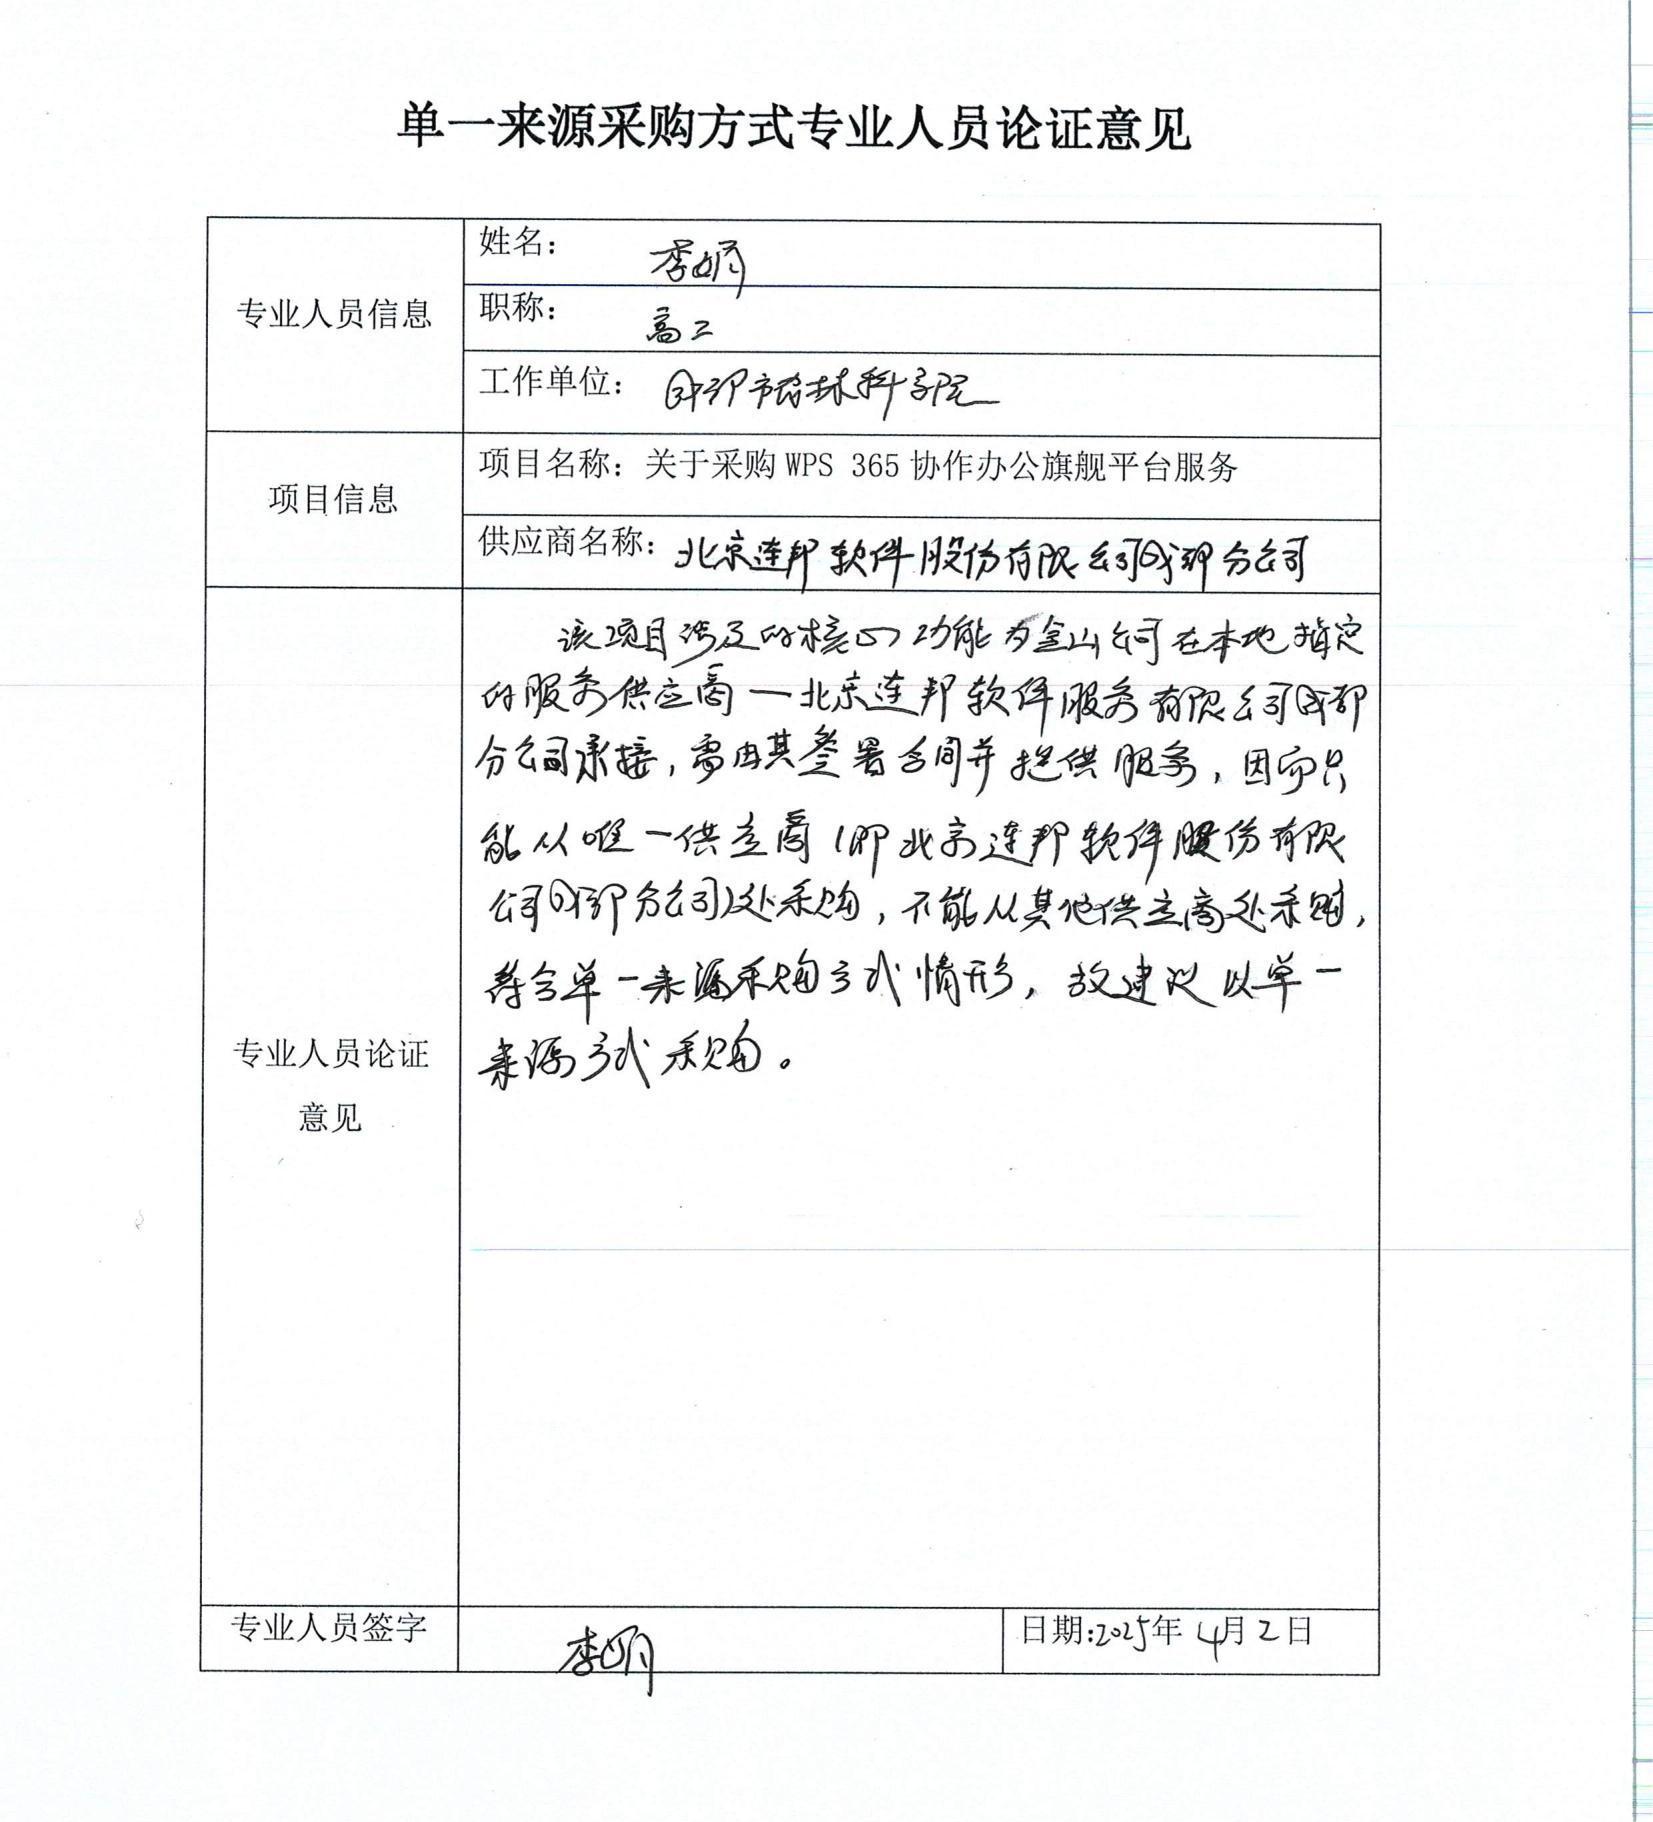 单一来源采购方式专业人员论证意见
专业人员信息
姓名： 李娟
职称： 高工
工作单位： 成都市农林科学院
项目信息
项目名称：关于采购WPS 365协作办公旗舰平台服务
供应商名称：北京连邦软件股份有限公司成都分公司
专业人员论证
意见
该项目涉及的核心功能为金山公司在本地指定
的服务供应商一北京连邦软件服务有限公司成都
分公司承接，需由其签署合同并提供服务，因而只
能从唯一供应商（即北京连邦软件股份有限
公司成都分公司）处采购，不能从其他供应商处采购，
符合单一来源采购方式情形，故建议以单一
来源方式采购。
专业人员签字
李娟
日期:2025年4月2日